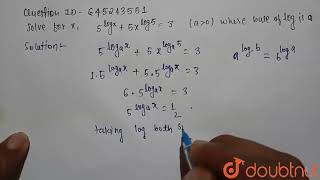 Question ID- 645243551
Solve for x, 5^{log x} + 5x^{log 5} = 3 (a>0) where base of log is a
Solution-
5^{log_a x} + 5x^{log_a 5} = 3
a^{log b} = b^{log a}
1.5^{log_a x} + 5.5^{log_a x} = 3
6.5^{log_a x} = 3
5^{log_a x} = 1/2
taking log both s
doubtnut